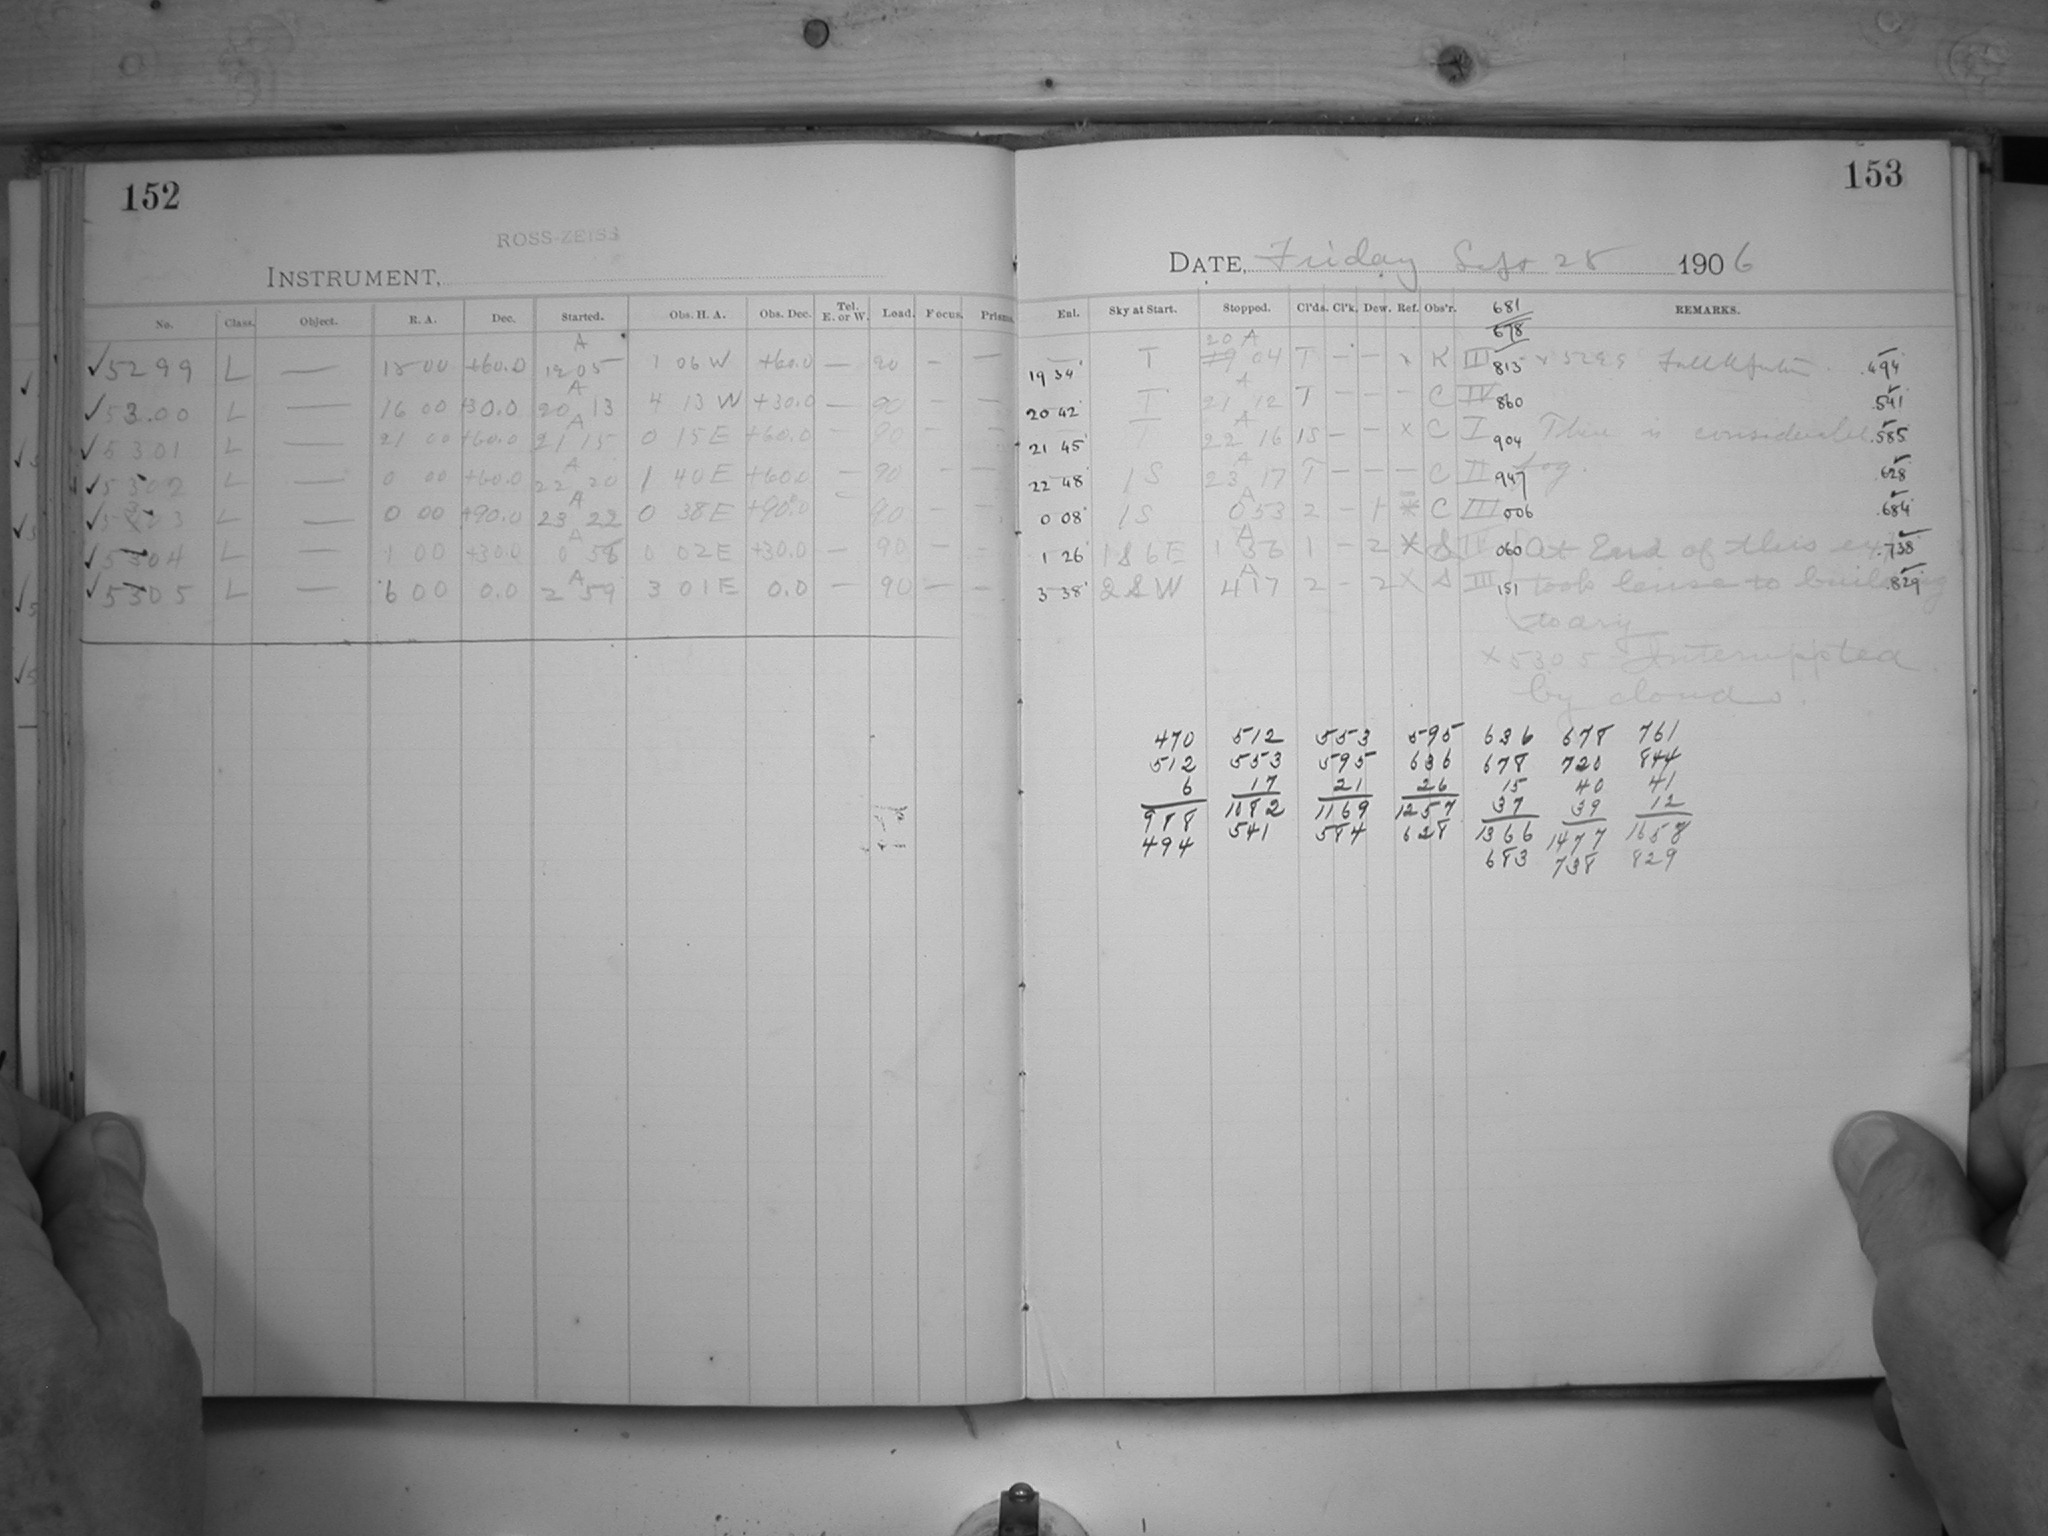 152
ROSS-ZEISS
INSTRUMENT,
No. Class. Object. R. A. Dec. Started. Obs. H. A. Obs. Dec. Tel. E. or W. Load. Focus. Prisms.
✓5299 L — 18 00 +60.0 A 19 05 1 06 W +60.0 — 90 – —
✓5300 L — 16 00 +30.0 A 20 13 4 13 W +30.0 — 90 – –
✓5301 L — 21 00 +60.0 A 21 15 0 15 E +60.0 – 90 – –
✓5302 L — 0 00 +60.0 A 22 20 1 40 E +60.0 — 90 – –
✓5303 L — 0 00 +90.0 A 23 22 0 38 E +90.0 90 – –
✓5304 L — 1 00 +30.0 A 0 56 0 02 E +30.0 – 90 – –
✓5305 L — 6 00 0.0 A 2 59 3 01 E 0.0 — 90 — –
153
DATE, Friday Sept 28 1906
Exl. Sky at Start. Stopped. Cl'ds. Cl'k. Dew. Ref. Obs'r. 681 678 REMARKS.
19 34 T 20 A 04 T – – x K III 813 x 5299 .494
20 42 T A 21 12 T – – – C IV 860 .541
21 45 T A 22 16 1S – – x C I 904 There is considerable .585
22 48 1S A 23 17 T – – – C II 947 fog. .628
0 08 1S A 0 53 2 – 1 C III 006 .684
1 26 1S6E A 1 36 1 – 2 x S II 060 At End of this exp. .738
3 38 2SW A 4 17 2 – 2 x S III 151 took lense to building .829
to dry
x 5305 Interuppted
by clouds.
470 512 553 595 636 678 761
512 553 595 636 678 720 844
6 17 21 26 15 40 41
37 39 12
988 1082 1169 1257 1366 1477 1658
494 541 584 628 683 738 829